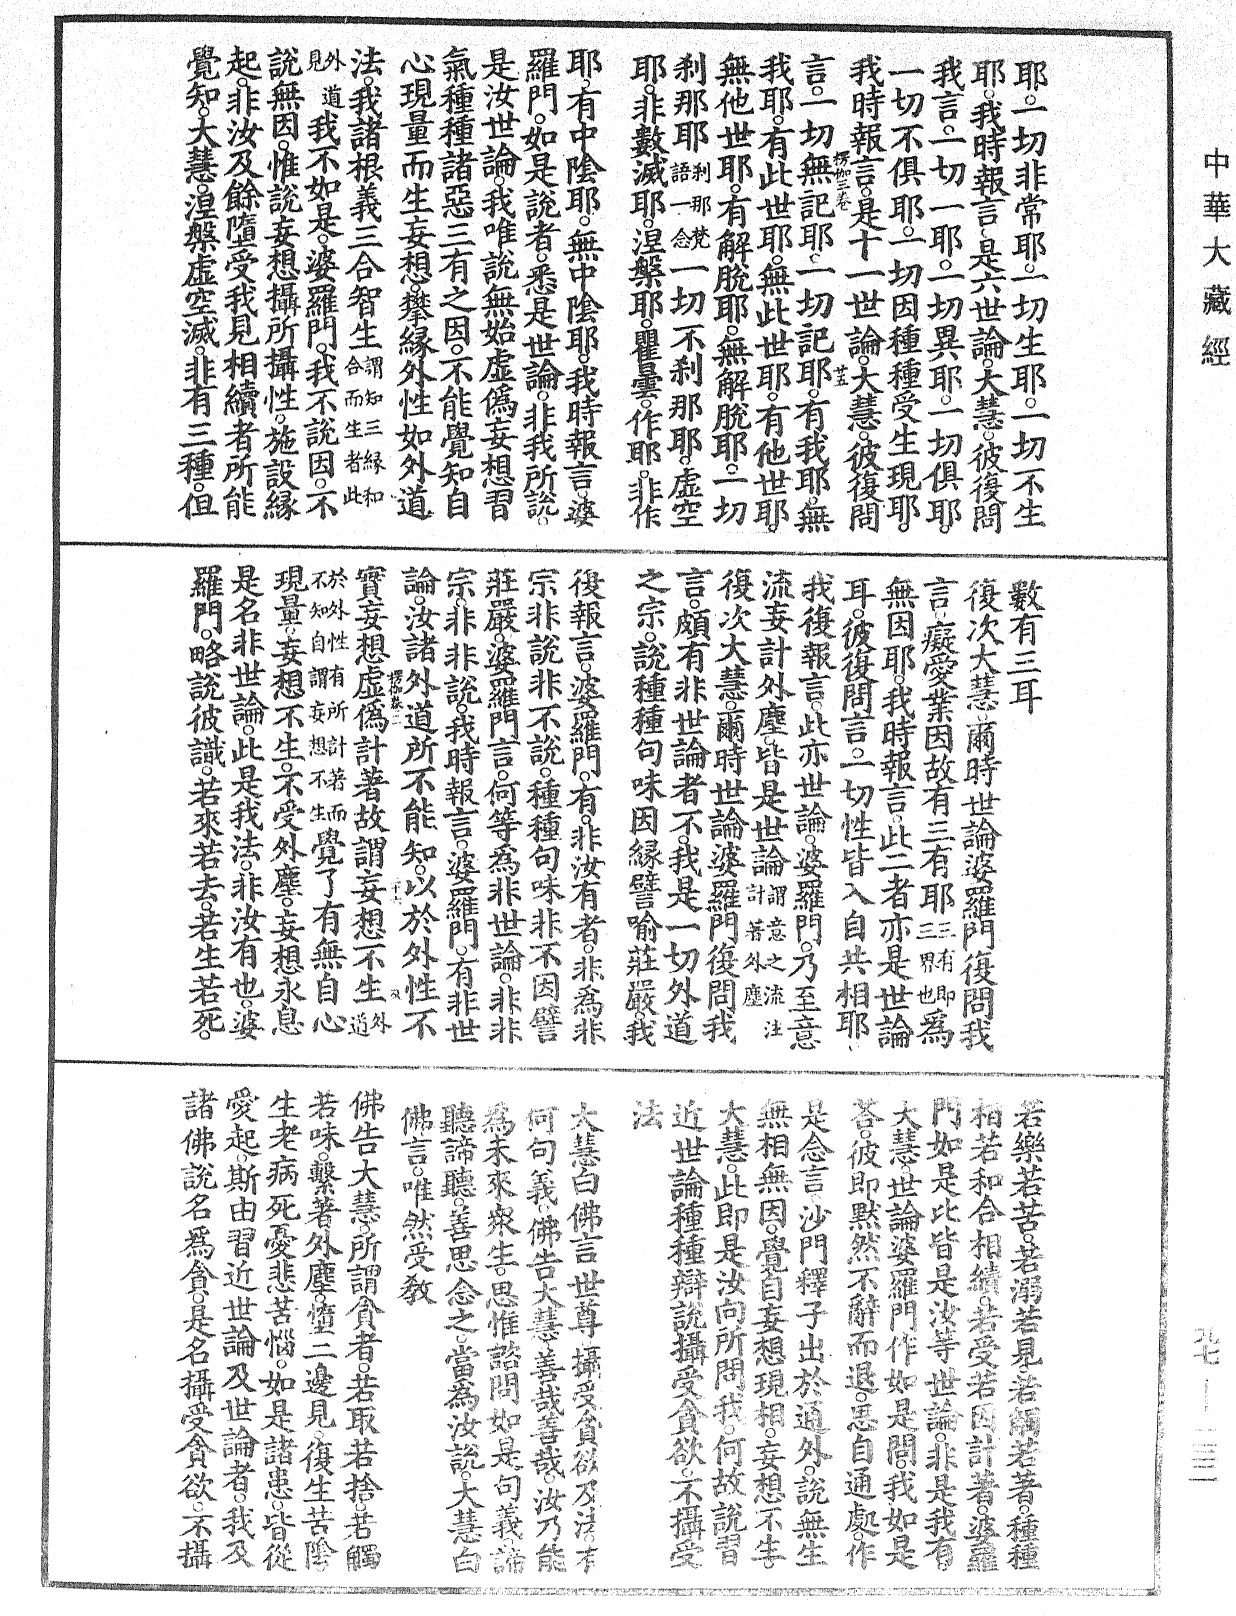 中華大藏經
耶。一切非常耶。一切生耶。一切不生
耶。我時報言。是六世論。大慧。彼復問
我言。一切一耶。一切異耶。一切俱耶。
一切不俱耶。一切因種種受生現耶。
我時報言。是十一世論。大慧。彼復問
楞伽三卷
廿五
言。一切無記耶。一切記耶。有我耶。無
我耶。有此世耶。無此世耶。有他世耶。
無他世耶。有解脫耶。無解脫耶。一切
剎那耶剎那梵語一念一切不剎那耶。虛空
耶。非數滅耶。涅槃耶。瞿曇。作耶。非作
耶。有中陰耶。無中陰耶。我時報言。婆
羅門。如是說者。悉是世論。非我所說。
是汝世論。我唯說無始虛偽妄想習
氣種種諸惡三有之因。不能覺知自
心現量而生妄想。攀緣外性如外道
法。我諸根義三合智生謂知三緣和合而生者此
外道見我不如是。婆羅門。我不說因。不
說無因。惟說妄想攝所攝性。施設緣
起。非汝及餘墮受我見相續者所能
覺知。大慧。涅槃虛空滅。非有三種。但
數有三耳
復次大慧。爾時世論婆羅門復問我
言。癡愛業因故有三有耶三有即三界也為
無因耶。我時報言。此二者亦是世論
耳。彼復問言。一切性皆入自共相耶。
我復報言。此亦世論。婆羅門。乃至意
流妄計外塵。皆是世論謂意之流注計著外塵
復次大慧。爾時世論婆羅門復問我
言。頗有非世論者不。我是一切外道
之宗。說種種句味因緣譬喻莊嚴。我
復報言。婆羅門。有。非汝有者。非為非
宗非說非不說。種種句味非不因譬
莊嚴。婆羅門言。何等為非世論。非非
宗。非非說。我時報言。婆羅門。有非世
論。汝諸外道所不能知。以於外性不
楞伽卷三
實妄想虛偽計著故。謂妄想不生外道
於外性有所計著而不知自謂妄想不生覺了有無自心
現量。妄想不生。不受外塵。妄想永息
是名非世論。此是我法。非汝有也。婆
羅門。略說彼識。若來若去。若生若死。
若樂若苦。若溺若見。若觸若著。種種
相若和合相續。若受若因計著。婆羅
門。如是比皆是汝等世論。非是我有
大慧。世論婆羅門作如是問。我如是
荅。彼即默然不辭而退。思自通處。作
是念言。沙門釋子出於通外。說無生
無相無因。覺自妄想現相。妄想不生。
大慧。此即是汝向所問我。何故說習
近世論種種辯說攝受貪欲。不攝受
法
大慧白佛言世尊攝受貪欲及法有
何句義。佛告大慧。善哉善哉。汝乃能
為未來眾生。思惟諮問如是句義。諦
聽諦聽。善思念之。當為汝說。大慧白
佛言。唯然受教
佛告大慧。所謂貪者。若取若捨。若觸
若味。繫著外塵。墮二邊見。復生苦陰
生老病死。憂悲苦惱。如是諸患。皆從
愛起。斯由習近世論及世論者。我及
諸佛說名為貪。是名攝受貪欲。不攝